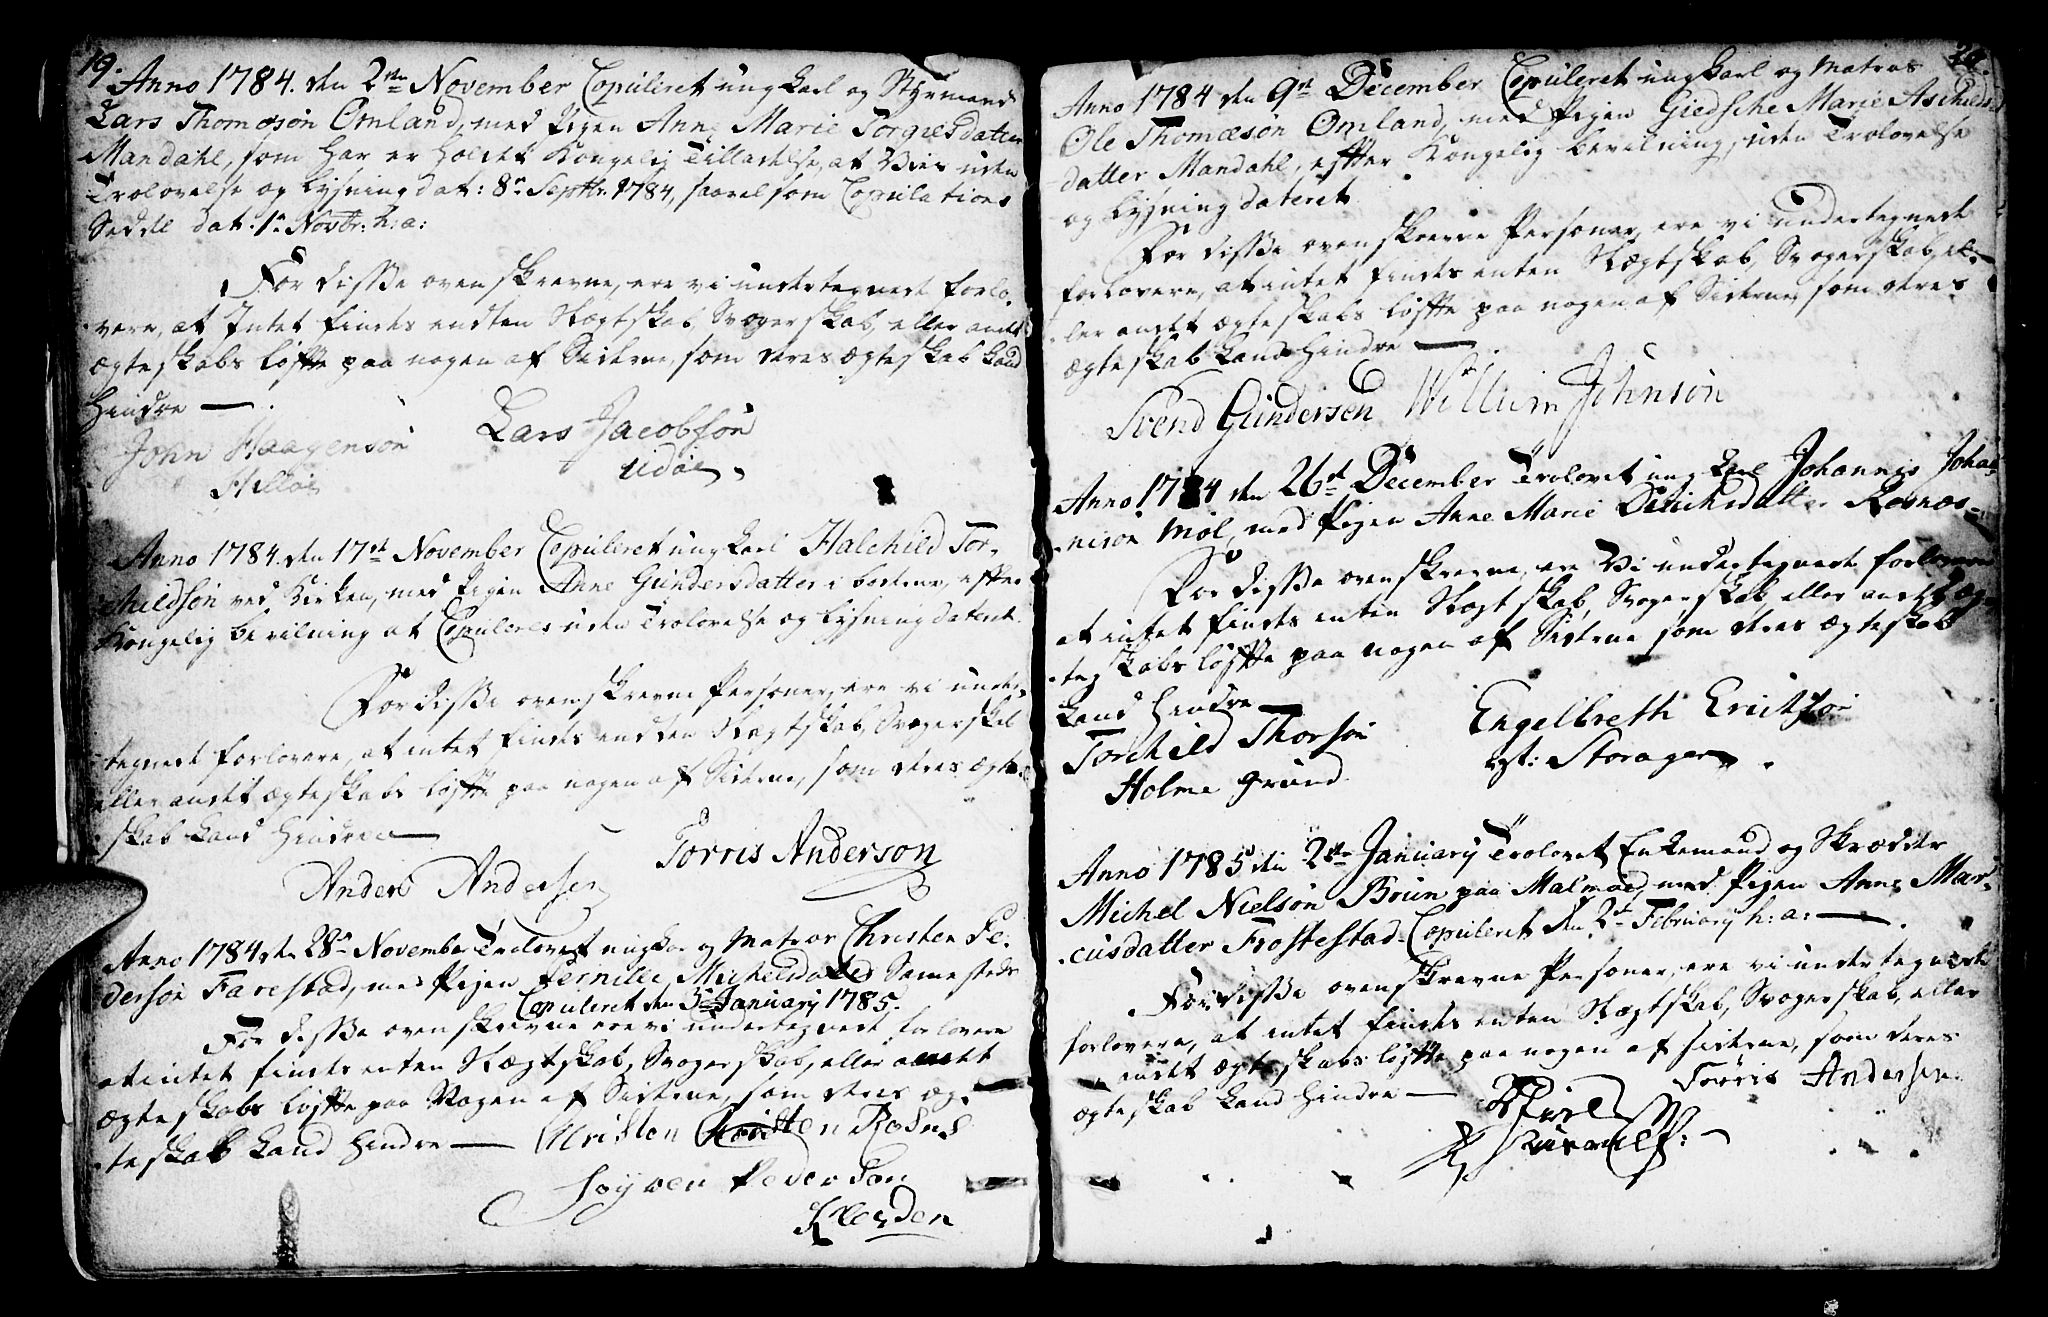 19.
Anno 1784. den 2den November Copuleret ung Karl og Styrmand
Lars Thomæsøn Omland, med Pigen Anne Marie Torgiesdatter
Mandahl, som har er holdet Kongelig Tilladelse, at Vies uden
Trolovelse og Lysning dat: 8de Septbr. 1784, saavelsom Copulations
Seddel dat. 1te Novbr: h: a:
For disse ovenskrevne, ere vi undertegnede forlo-
vere, at Intet findes endten Slægtskab, Svogerskab, eller andet
ægteskabs løffte paa nogen af Siderne, som deres ægteskab kand
hindre —
John Haagensøn Lars Jacobsøn
Hilløe Udøe
Anno 1784. den 17de November Copuleret ung Karl Halchild Tor-
childsøn ved Kirken, med Pigen Anne Gundersdatter i , efter
Kongelig bevilning at Copuleres uden Trolovelse og Lysning dateret
For disse ovenskrevne Personer, ere vi under-
tegnede forlovere, at intet findes endten Slægtskab, Svogerskab
eller andet ægteskabs løffte paa nogen af Siderne, som deres ægte-
skab kand hindre —
Anders Andersen Torris Anderson
Anno 1784 den 28de November Trolovet ungkar og Matros Christen Pe-
dersøn Farestad, med Pigen Pernille Michelsdatter Sammesteds
Copuleret den 3de January 1785.
For disse ovenskrevne ere vi undertegnede forlovere
at intet findes enten Slægtskab, Svogerskab, eller andet
ægteskabs løffte paa Nogen af Siderne, som deres æg-
teskab kand hindre — Christen Rosnes
Søyren Pedersøn

Anno 1784 den 9de December Copuleret ung Karl og Matros
Ole Thomæsøn Omland, med Pigen Giedsche Marie Aschilds-
datter Mandahl, efter Kongelig bevilning, uden Trolovelse
og Lysning dateret
For disse ovenskrevne Personer, ere vi undertegnede
forlovere, at intet findes enten Slægtskab, Svogerskab, el-
ler andet ægteskabs løffte paa nogen af Siderne, som deres
ægteskab kand hindre —
Svend Gundersen Willum Johnsøn
Anno 1784 den 26de December Trolovet ung Karl Johannis Johan-
nisøn Møl, med Pigen Anne Marie Rosnes
For disse ovenskrevne, ere Vi undertegnede forlovere
at intet findes enten Slægtskab, Svogerskab eller andet æg-
teskabs løffte paa nogen af Siderne som deres ægteskab
kand hindre
Torchild Thorsøn Engelbreth Erichsøn
Holme grund Storager
Anno 1785 den 2den January Trolovet Enkemand og Skræder
Michel Nielsøn Brun paa Malmøe, med Pigen Anne Mar-
cusdatter Frøstestad. Copuleret den 2de February h: a: —
For disse ovenskrevne Personer, ere vi undertegnede
forlovere, at intet findes enten Slægtskab, Svogerskab, eller
andet ægteskabs løffte paa nogen af siderne, som deres
ægteskab kand hindre — Torris Andersen